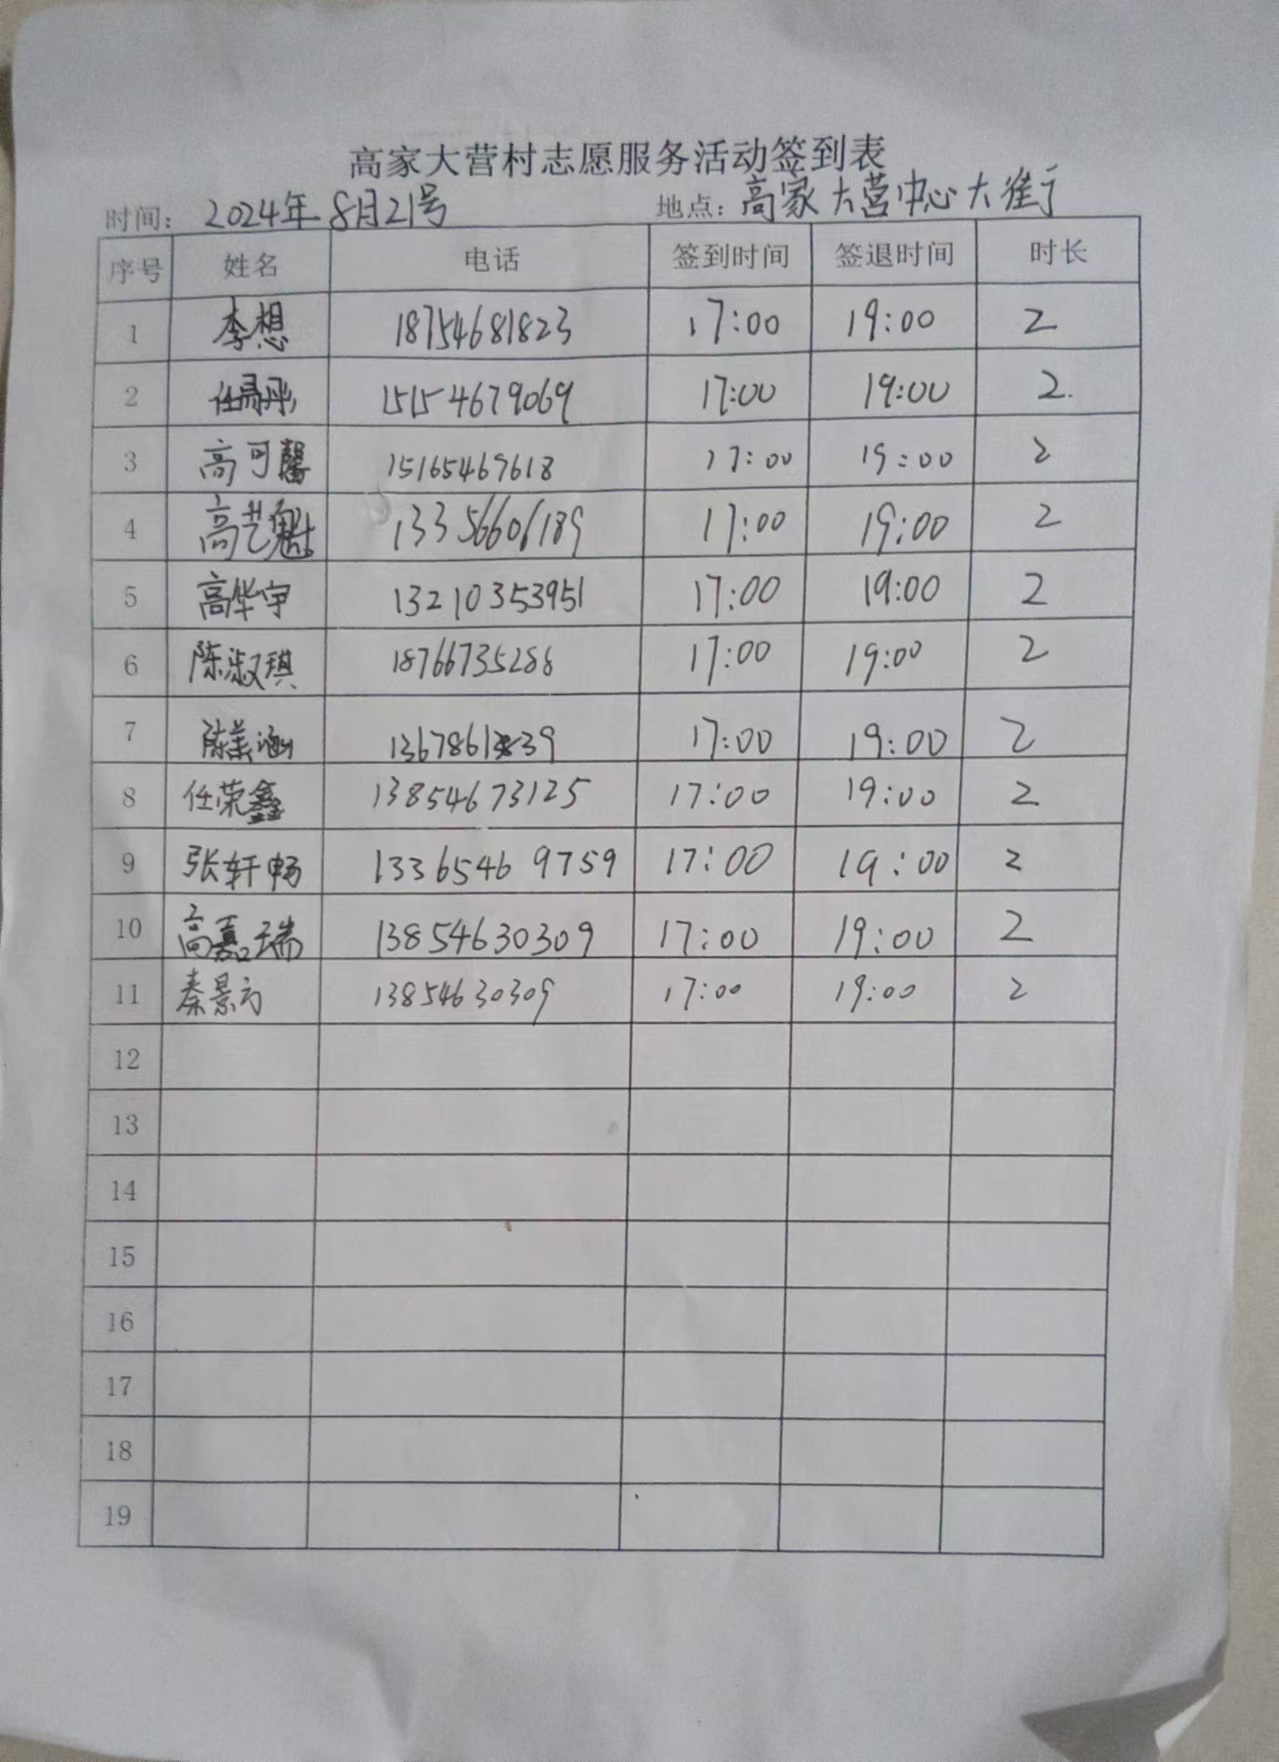 高家大营村志愿服务活动签到表
时间: 2024年8月21号 地点: 高家大营中心大街
序号 姓名 电话 签到时间 签退时间 时长
1 李想 18754681823 17:00 19:00 2
2 15154679069 17:00 19:00 2.
3 高可馨 15165469618 17:00 19:00 2
4 高艺魁 13356606189 17:00 19:00 2
5 高华宇 13210353951 17:00 19:00 2
6 陈淑琪 18766735286 17:00 19:00 2
7 陈美涵 17:00 19:00 2
8 任荣鑫 13854673125 17:00 19:00 2
9 张轩畅 13365469759 17:00 19:00 2
10 高嘉瑞 13854630309 17:00 19:00 2
11 秦景方 13854630309 17:00 19:00 2
12
13
14
15
16
17
18
19